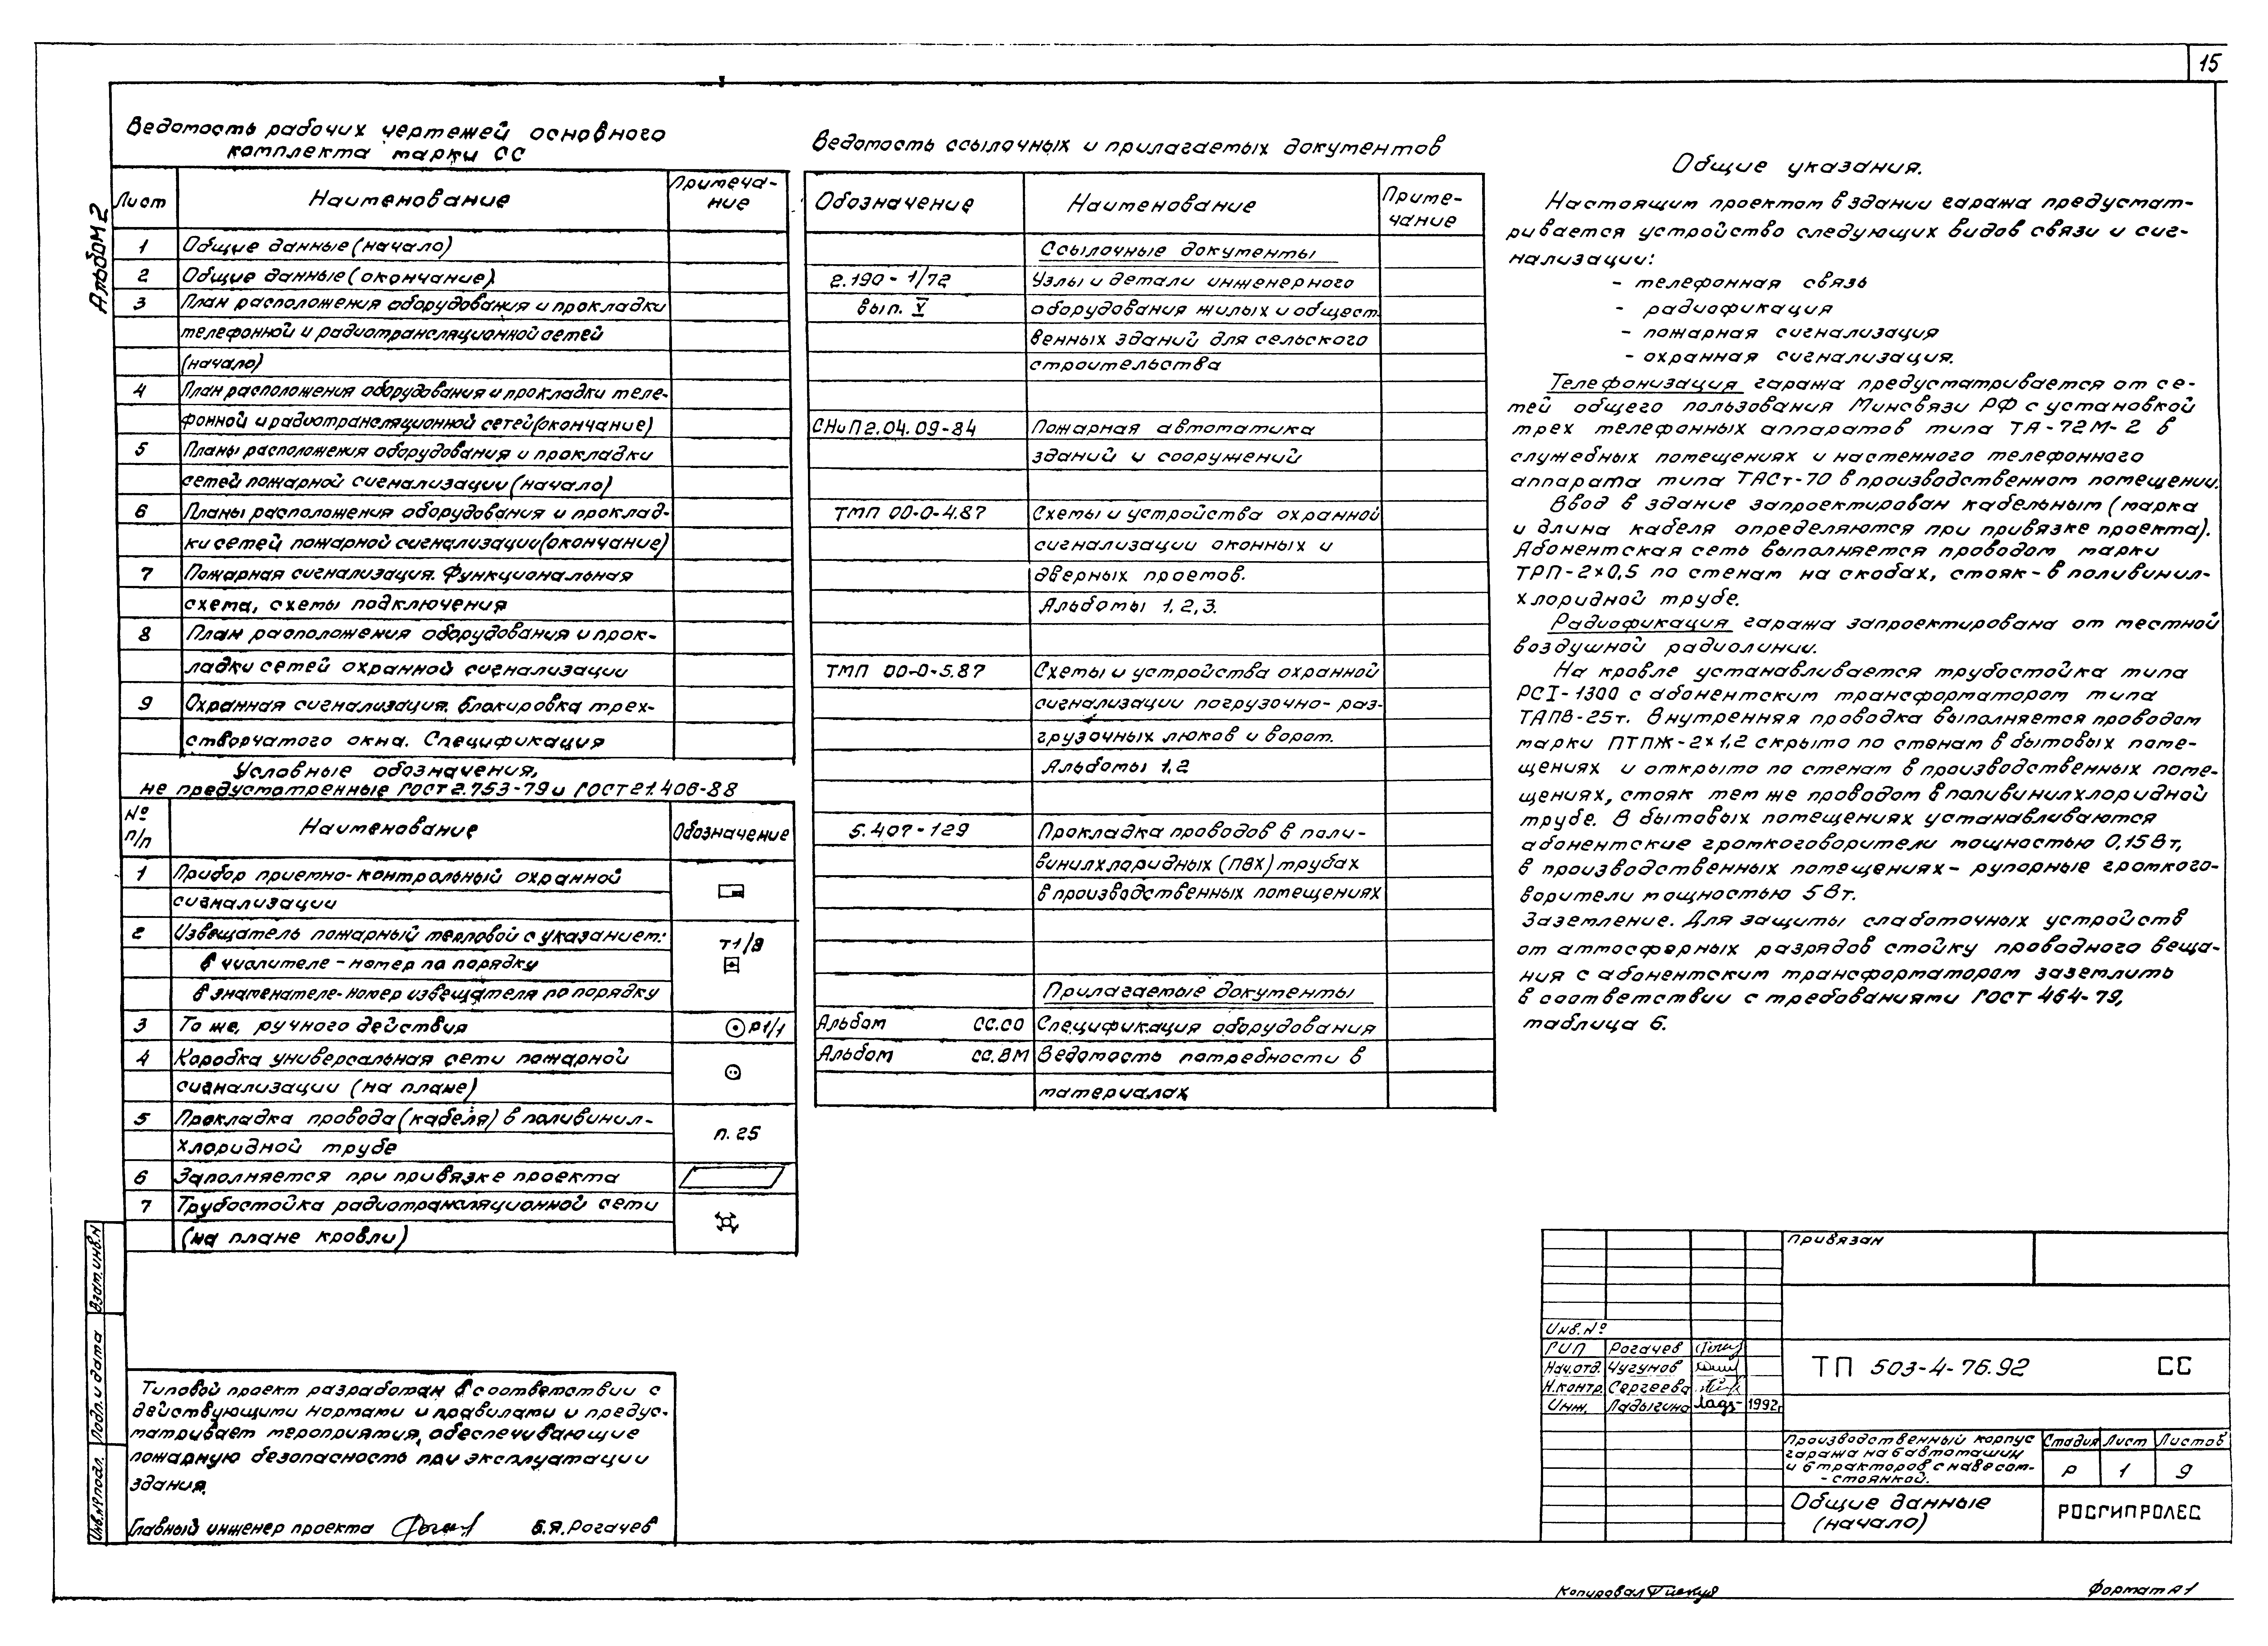 15
Альбом 2
Ведомость рабочих чертежей основного
комплекта марки СС
Лист Наименование Примеча-
ние
1 Общие данные (начало)
2 Общие данные (окончание)
3 План расположения оборудования и прокладки
телефонной и радиотрансляционной сетей
(начало)
4 План расположения оборудования и прокладки теле-
фонной и радиотрансляционной сетей (окончание)
5 Планы расположения оборудования и прокладки
сетей пожарной сигнализации (начало)
6 Планы расположения оборудования и проклад-
ки сетей пожарной сигнализации (окончание)
7 Пожарная сигнализация. Функциональная
схема, схемы подключения
8 План расположения оборудования и прок-
ладки сетей охранной сигнализации
9 Охранная сигнализация. Блокировка трех-
створчатого окна. Спецификация
Условные обозначения,
не предусмотренные ГОСТ 2.753-79 и ГОСТ 21.406-88
№
п/п Наименование Обозначение
1 Прибор приемно-контрольный охранной
сигнализации
2 Извещатель пожарный тепловой с указанием:
в числителе - номер по порядку
в знаменателе - номер извещателя по порядку
Т1/8
3 То же, ручного действия Р1/1
4 Коробка универсальная сети пожарной
сигнализации (на плане)
5 Прокладка провода (кабеля) в поливинил-
хлоридной трубе
п. 25
6 Заполняется при привязке проекта
7 Трубостойка радиотрансляционной сети
(на плане кровли)
Типовой проект разработан в соответствии с
действующими нормами и правилами и предус-
матривает мероприятия, обеспечивающие
пожарную безопасность при эксплуатации
здания.
Главный инженер проекта Б.Я. Рогачев
Взам. инв. №
Подп. и дата
Инв. № подл.
Ведомость ссылочных и прилагаемых документов
Обозначение Наименование Приме-
чание
Ссылочные документы
2.190 - 1/72 Узлы и детали инженерного
вып. V оборудования жилых и общест-
венных зданий для сельского
строительства
СНиП 2.04.09-84 Пожарная автоматика
зданий и сооружений
ТМП 00-0-4.87 Схемы и устройства охранной
сигнализации оконных и
дверных проемов.
Альбомы 1, 2, 3.
ТМП 00-0-5.87 Схемы и устройства охранной
сигнализации погрузочно-раз-
грузочных люков и ворот.
Альбомы 1, 2
5.407-129 Прокладка проводов в поли-
винилхлоридных (ПВХ) трубах
в производственных помещениях
Прилагаемые документы
Альбом СС.СО Спецификация оборудования
Альбом СС.ВМ Ведомость потребности в
материалах
Общие указания.
Настоящим проектом в здании гаража предусмат-
ривается устройство следующих видов связи и сиг-
нализации:
- телефонная связь
- радиофикация
- пожарная сигнализация
- охранная сигнализация.
Телефонизация гаража предусматривается от се-
тей общего пользования Минсвязи РФ с установкой
трех телефонных аппаратов типа ТА-72М-2 в
служебных помещениях и настенного телефонного
аппарата типа ТАСт-70 в производственном помещении.
Ввод в здание запроектирован кабельным (марка
и длина кабеля определяются при привязке проекта).
Абонентская сеть выполняется проводом марки
ТРП-2х0,5 по стенам на скобах, стояк - в поливинил-
хлоридной трубе.
Радиофикация гаража запроектирована от местной
воздушной радиолинии.
На кровле устанавливается трубостойка типа
РСI-1300 с абонентским трансформатором типа
ТАПВ-25т. Внутренняя проводка выполняется проводом
марки ПТПЖ-2х1,2 скрыто по стенам в бытовых поме-
щениях и открыто по стенам в производственных поме-
щениях, стояк тем же проводом в поливинилхлоридной
трубе. В бытовых помещениях устанавливаются
абонентские громкоговорители мощностью 0,15 Вт,
в производственных помещениях - рупорные громкого-
ворители мощностью 5 Вт.
Заземление. Для защиты слаботочных устройств
от атмосферных разрядов стойку проводного веща-
ния с абонентским трансформатором заземлить
в соответствии с требованиями ГОСТ 464-79,
таблица 6.
Привязан
Инв. №
ГИП Рогачев
Нач.отд. Чугунов
Н.контр. Сергеева
Инж. Ладыгина 1992г.
ТП 503-4-76.92 СС
Производственный корпус
гаража на 6 автомашин
и 6 тракторов с навесом-
-стоянкой.
Стадия Лист Листов
Р 1 9
Общие данные
(начало)
РОСГИПРОЛЕС
Копировал
Формат А1